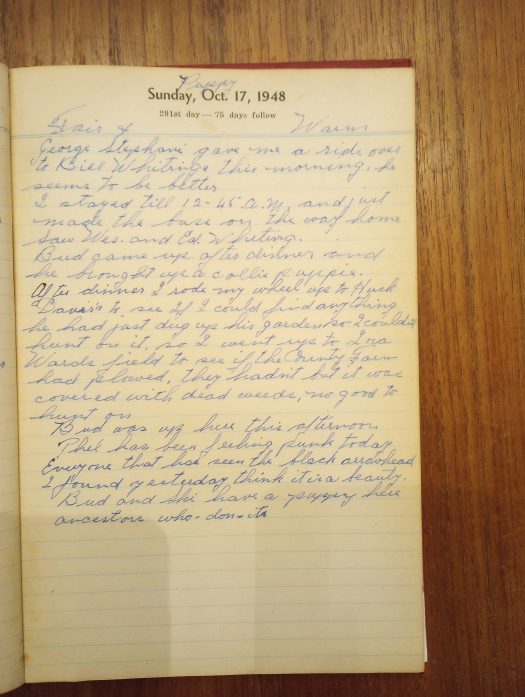 Puppy
Sunday, Oct. 17, 1948
291st day — 75 days follow
Fair & Warm
George Stephani gave me a ride over
to Bill Whitings this morning, he
seems to be better
I stayed till 12-45 A.M. and just
made the buss on the way home
Saw Wes. and Ed. Whiting.
Bud came up after dinner and
he brought up a collie puppie.
After dinner I rode my wheel up to Huck
Davis's to see If I could find anything
he had just dug up his garden so I couldn't
hunt on it, so I went up to Ira
Wards field to see if the County Farm
had plowed, they hadnt but it was
covered with dead weeds, no good to
hunt on
Bud was up here this afternoon
Phil has been feeling punk today
Everyone that has seen the black arrowhead
I found yesterday think it is a beauty.
Bud and Ski have a puppy here
ancestors who-don-its